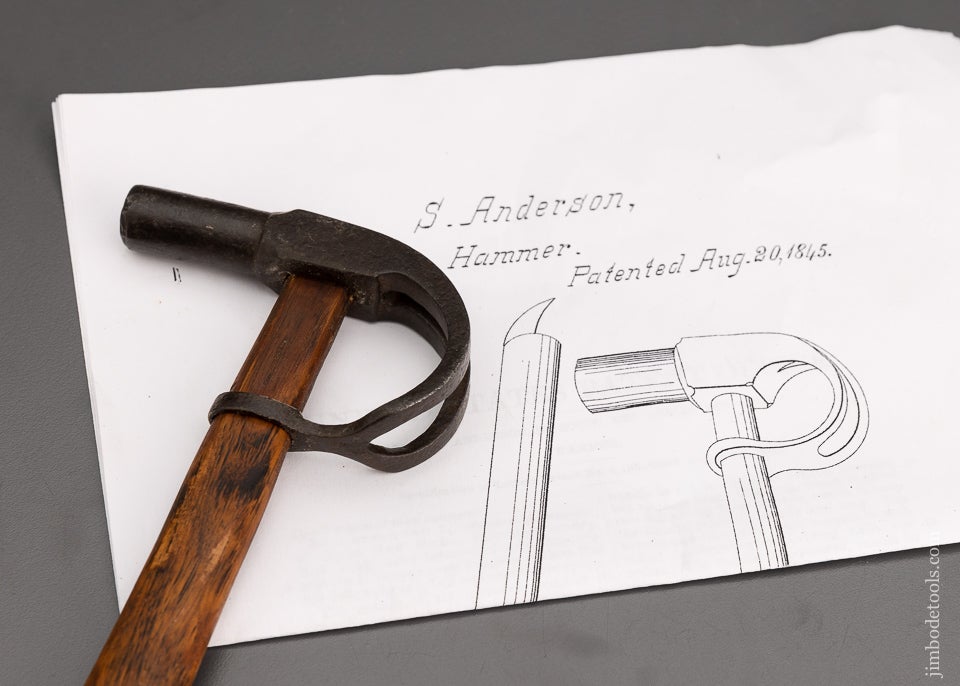 S. Anderson,
Hammer.
Patented Aug. 20, 1845.
jimbodetools.com